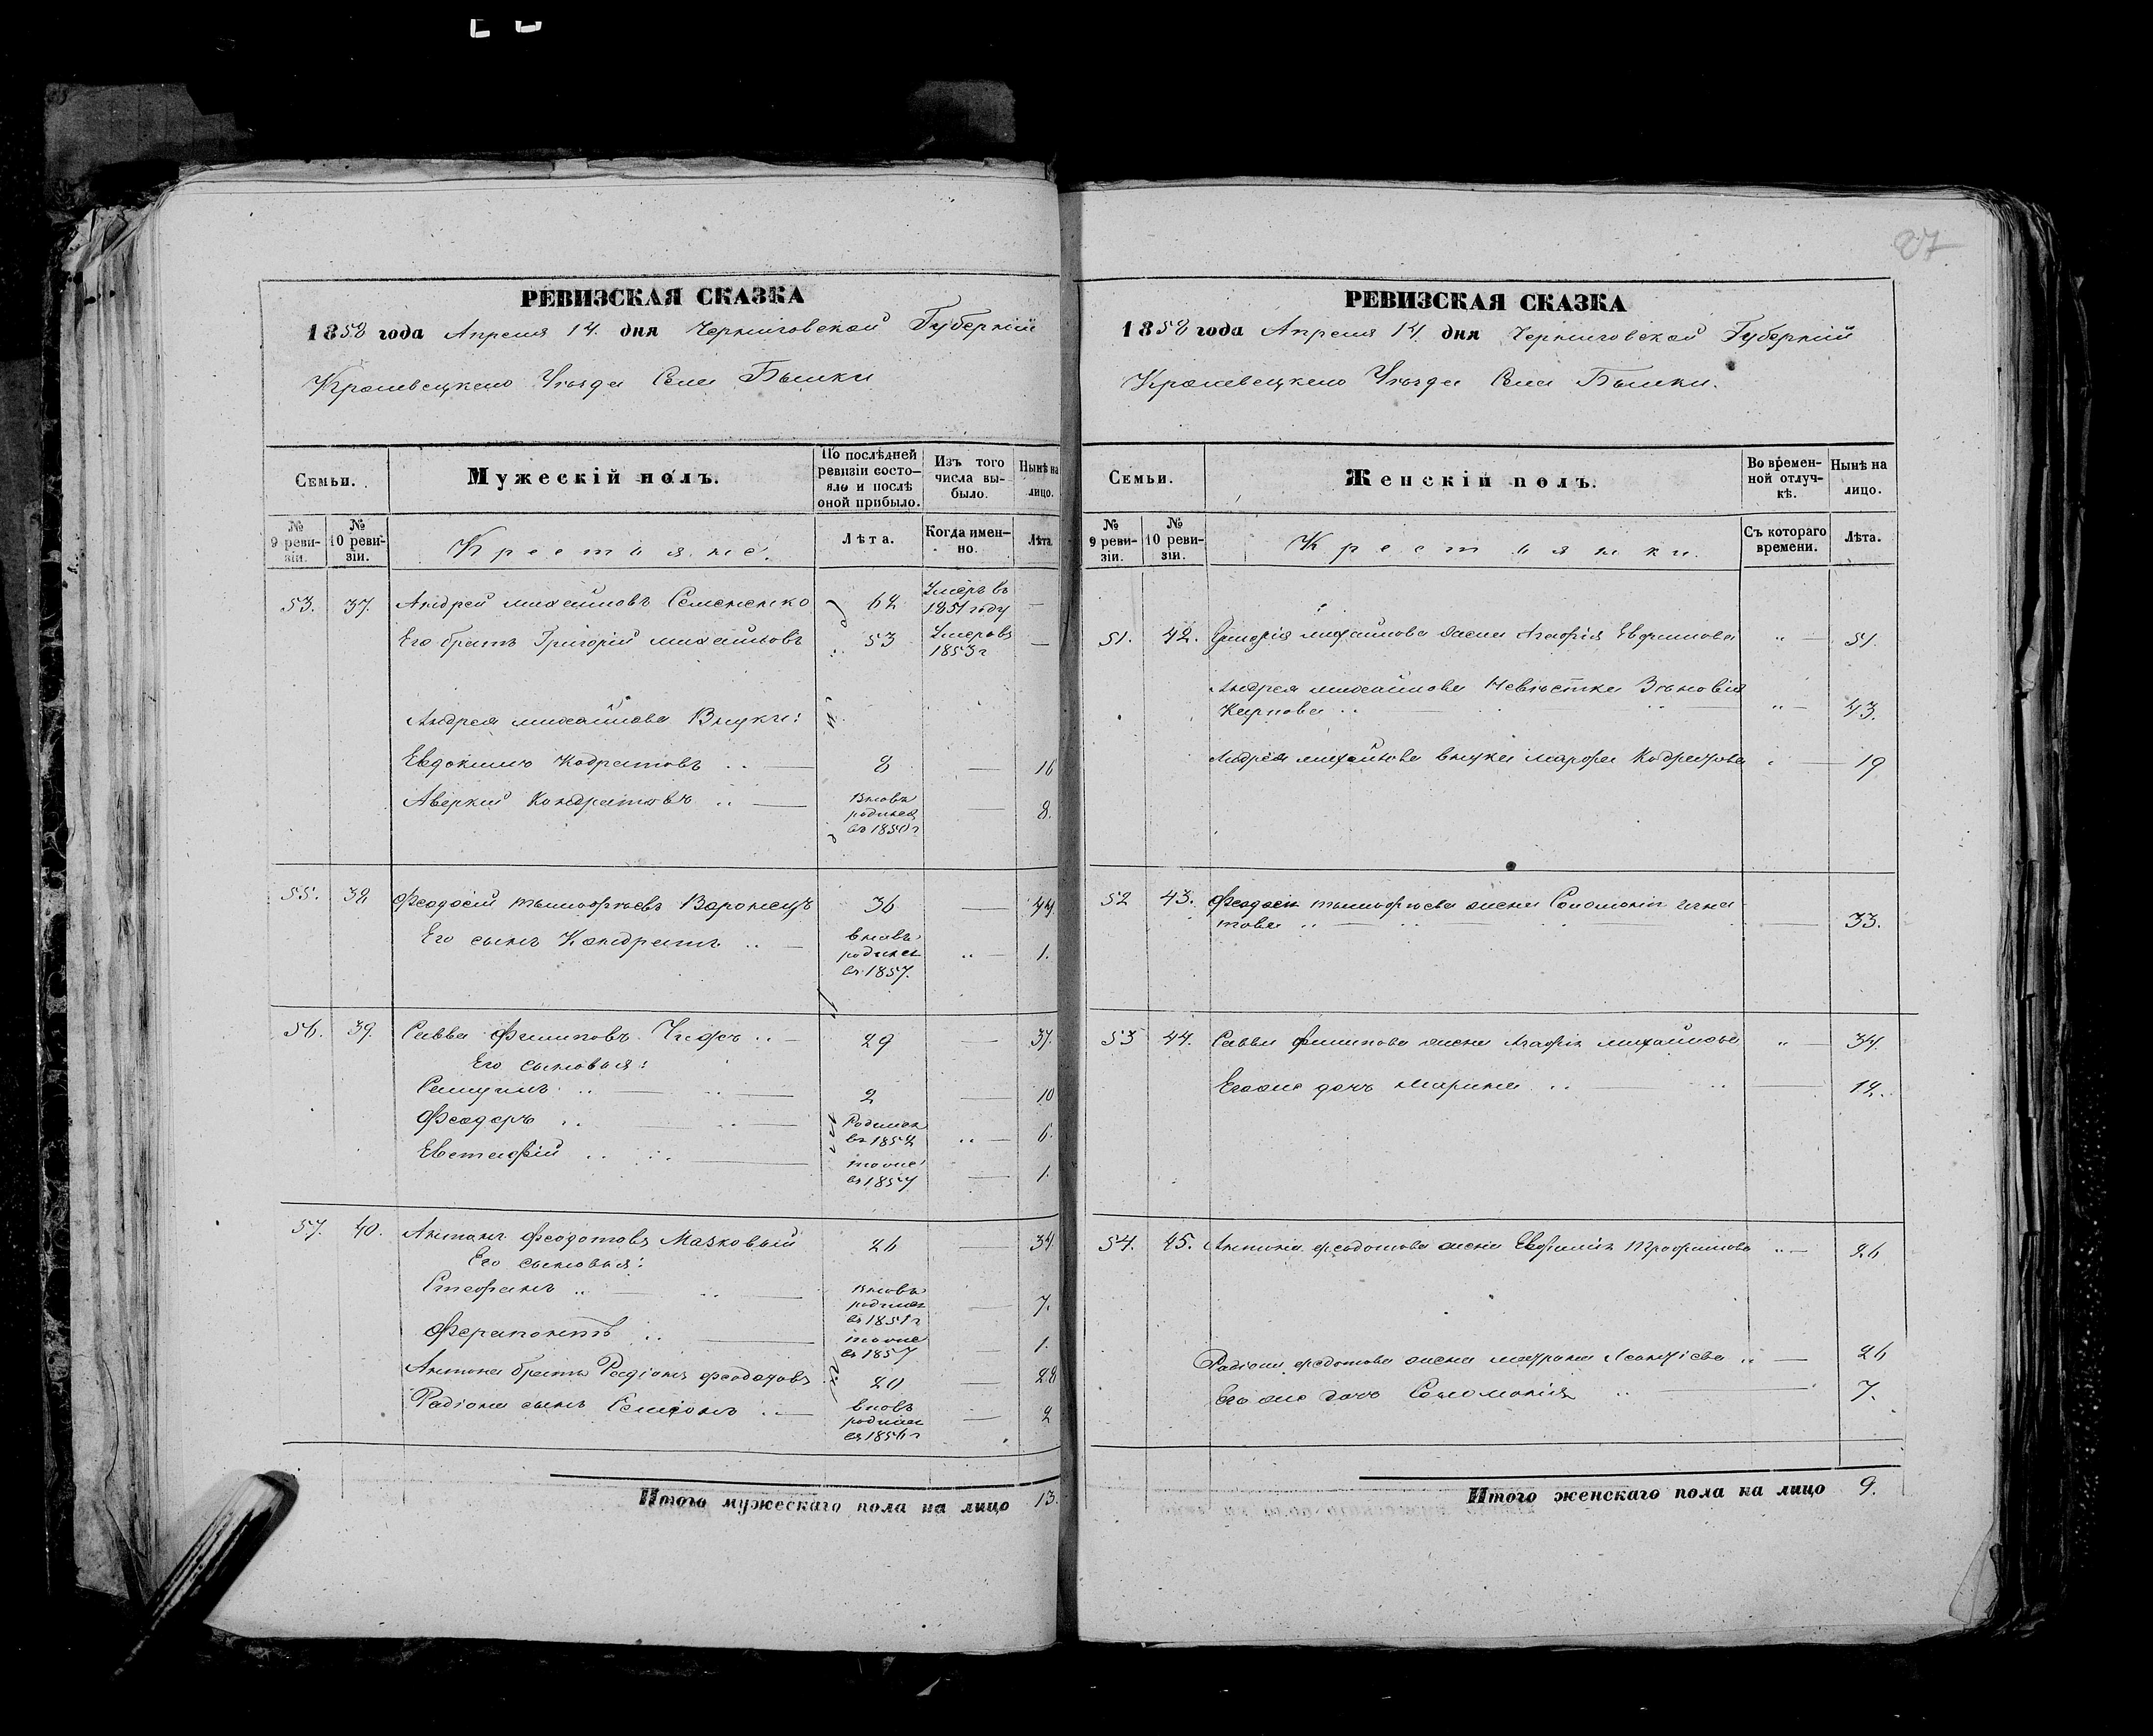 27
РЕВИЗСКАЯ СКАЗКА
1858 года Апреля 14. дня Черниговской Губерніи
Кролевецкаго Уѣзда Села Быпки
Семьи.
Мужескій полъ.
По послѣдней ревизіи состояло и послѣ оной прибыло.
Изъ того числа выбыло.
Нынѣ на лицо.
№ 9 ревизіи.
№ 10 ревизіи.
Крестьяне.
Лѣта.
Когда именно.
Лѣта.
53. 37. Андрей Михайловъ Семененко 62 Умеръ въ 1851 году —
Его братъ Григорій Михайловъ 53 Умеръ въ 1853 г —
Андрея Михайлова Внуки:
Евдокимъ Кодратовъ 8 — 16
Аверкій Кондратовъ Вновь родился въ 1850 г — 8.
55. 38 Феодосій Тимофѣевъ Воронецъ 36 — 44.
Его сынъ Кондратъ вновь родился въ 1857. — 1.
56. 39. Савва Филиповъ 29 — 37.
Его сыновья:
2 — 10
Феодоръ Родился въ 1852 — 6.
Евстафій тоже въ 1857 — 1.
57. 40. Антонъ Феодотовъ Мазковый 26 — 34
Его сыновья:
Стефанъ Вновь родился въ 1851 г — 7.
Ферапонтъ тоже въ 1857 — 1.
Антона братъ Радіонъ Феодотовъ 20 — 28
Радіона сынъ Семіонъ вновь родился въ 1856 г — 2
Итого мужескаго пола на лицо 13.
РЕВИЗСКАЯ СКАЗКА
1858 года Апреля 14. дня Черниговской Губерніи
Кролевецкаго Уѣзда Села Быпки.
Семьи.
Женскій полъ.
Во временной отлучкѣ.
Нынѣ на лицо.
№ 9 ревизіи.
№ 10 ревизіи.
Крестьянки.
Съ котораго времени.
Лѣта.
51. 42. Григорія Михайлова жена Агафія Ефимова — 51.
Андрея Михайлова Невѣстка Зѣновія
Карпова — 43.
Андрея Михайлова внука Марфа Кодратова — 19
52 43. Феодосія Тимофѣева жена Соломонія Игна
това — 33.
53 44. Саввы Филипова жена Агафія Михайлова — 34.
Егоже дочь Марина — 12.
54. 45. Антона Феодотова жена Евфимія Трофимова — 26
Радіона Федотова жена Матрона Леонтіева — 26
Его же дочь Соломонія — 7.
Итого женскаго пола на лицо 9.